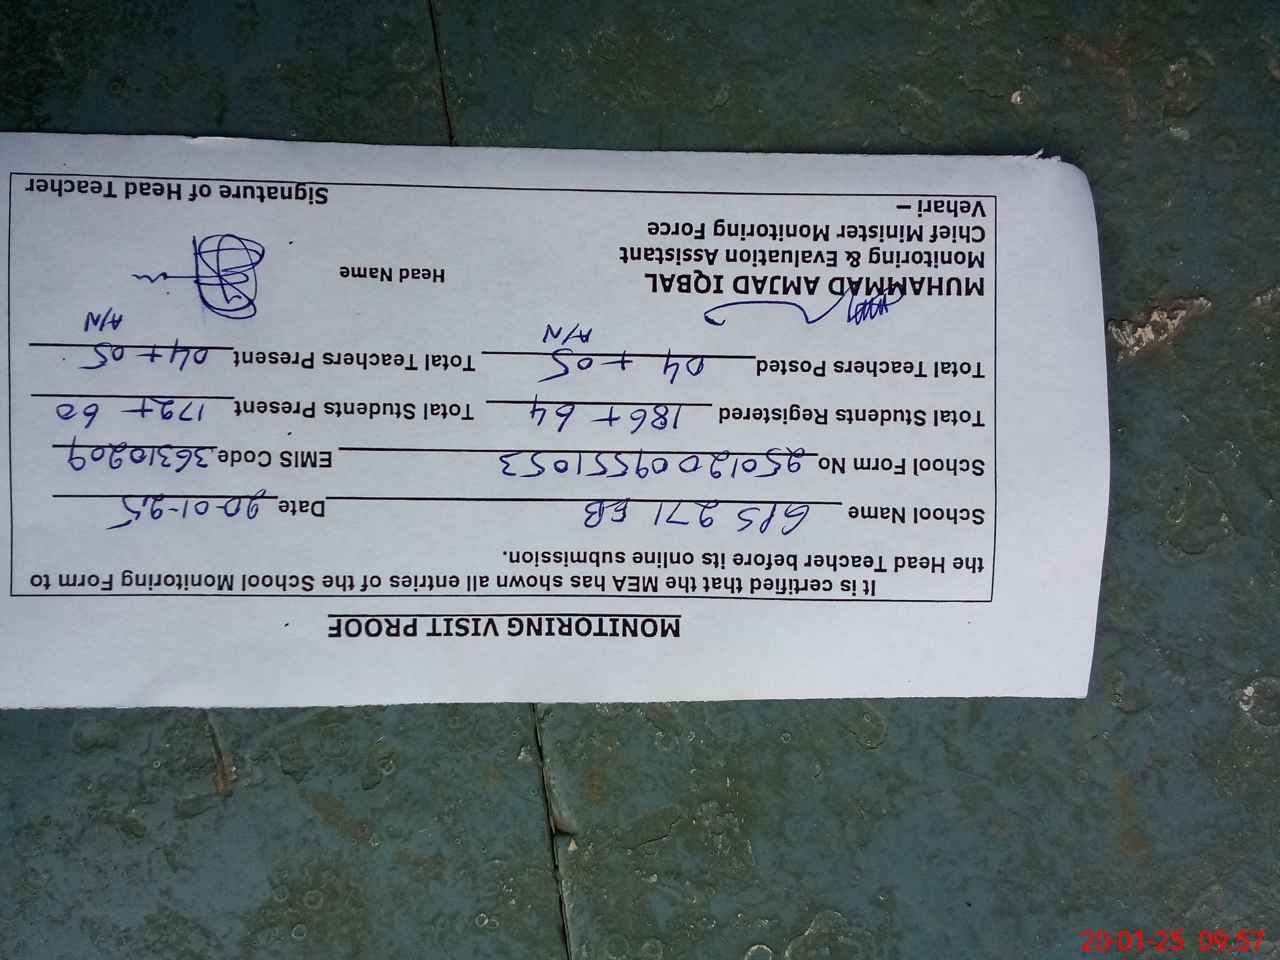 MONITORING VISIT PROOF
It is certified that the MEA has shown all entries of the School Monitoring Form to
the Head Teacher before its online submission.
School Name GPS 271 EB Date 20-01-25
School Form No 25012009551053 EMIS Code 36310209
Total Students Registered 186+ 64 Total Students Present 172+ 60
Total Teachers Posted 04 + 05 Total Teachers Present 04+ 05
A/N A/N
MUHAMMAD AMJAD IQBAL
Monitoring & Evaluation Assistant Head Name
Chief Minister Monitoring Force
Vehari – Signature of Head Teacher
20-01-25 09:57